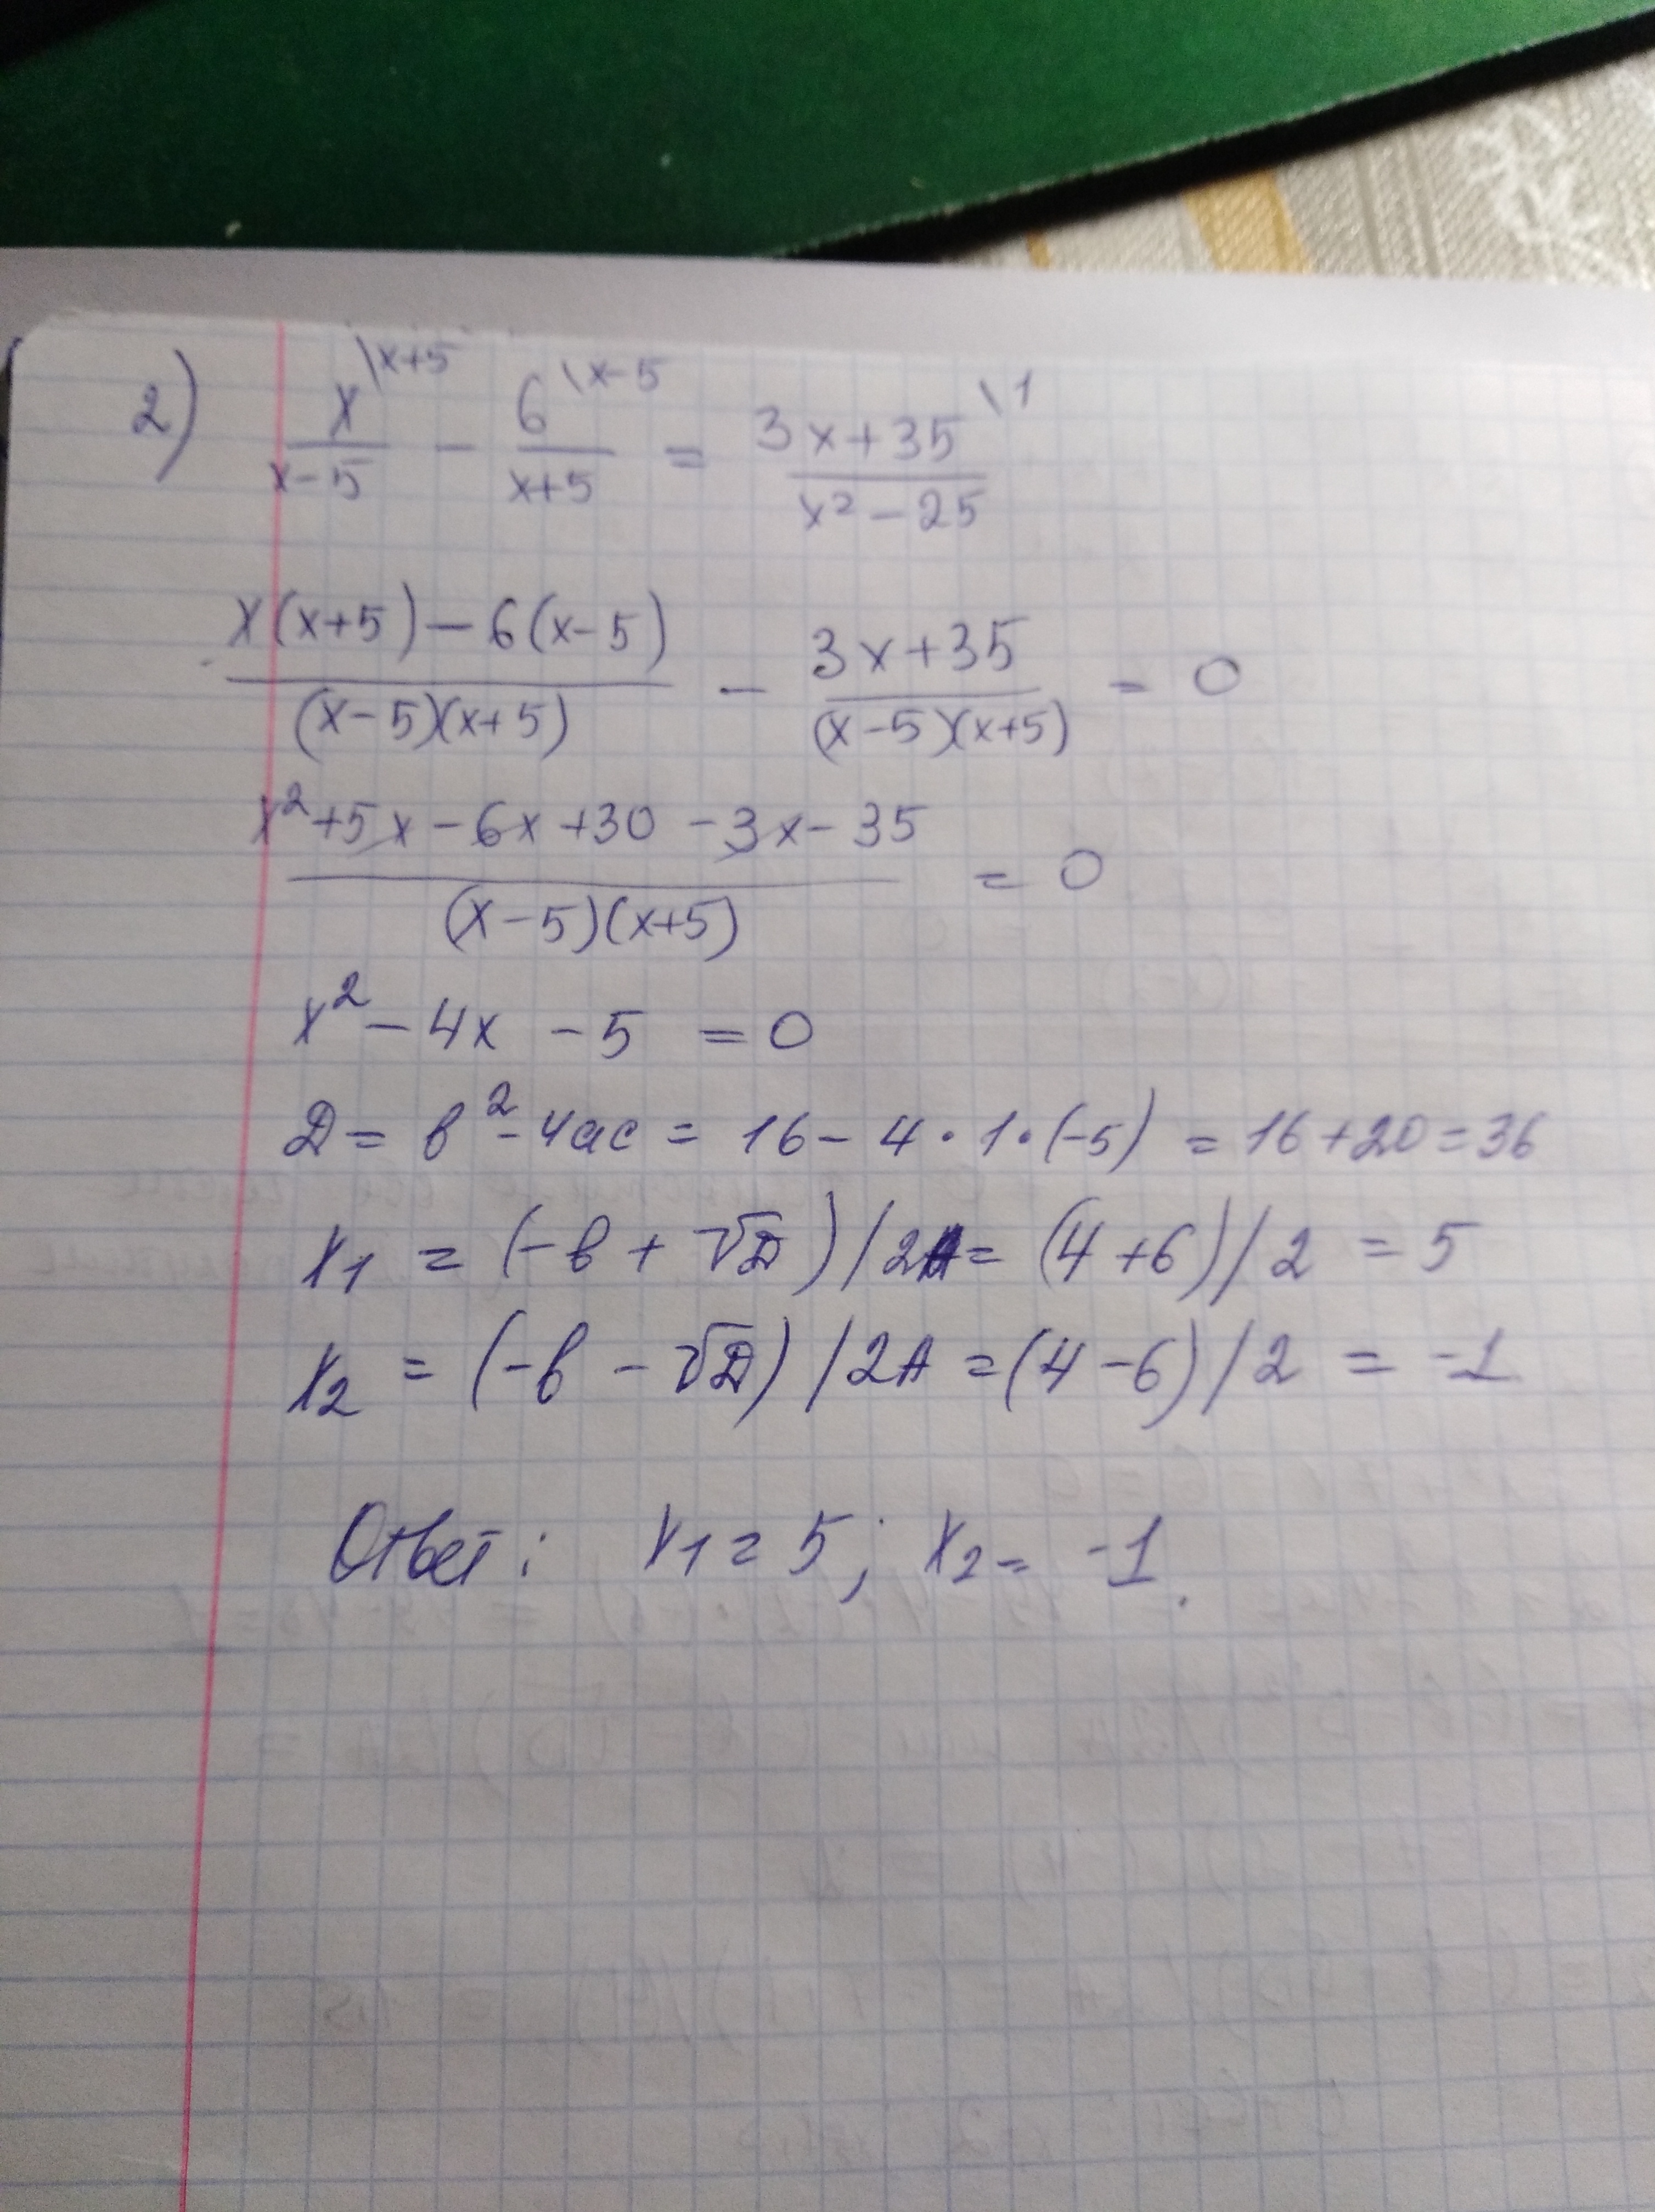 2) x\x+5 / x-5 - 6\x-5 / x+5 = 3x+35\1 / x²-25
x(x+5)-6(x-5) / (x-5)(x+5) - 3x+35 / (x-5)(x+5) = 0
x²+5x-6x+30-3x-35 / (x-5)(x+5) = 0
x²-4x-5=0
Д=в²-4ас=16-4·1·(-5)=16+20=36
x₁=(-в+√Д)/2А=(4+6)/2=5
x₂=(-в-√Д)/2А=(4-6)/2=-1
Ответ: x₁=5; x₂=-1.